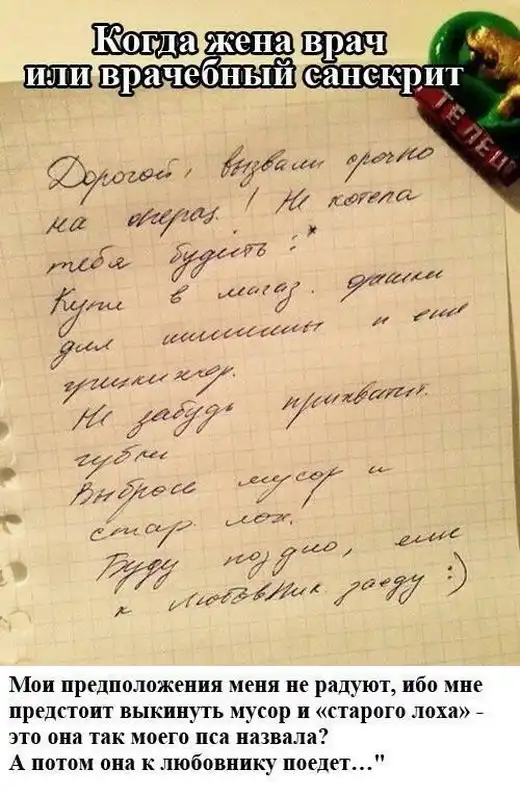 Когда жена врач
или врачебный санскрит
ТЕЛЕЦ
Дорогой, вызвали срочно
на операц.! Не хотела
тебя будить :*
Купи в магаз.
для и еще
Не забудь прихватит.
губки
Выброси мусор и
стар. лох!
Буду поздно, еще
к ЛюбовНик. заеду :)
Мои предположения меня не радуют, ибо мне
предстоит выкинуть мусор и «старого лоха» -
это она так моего пса назвала?
А потом она к любовнику поедет…"